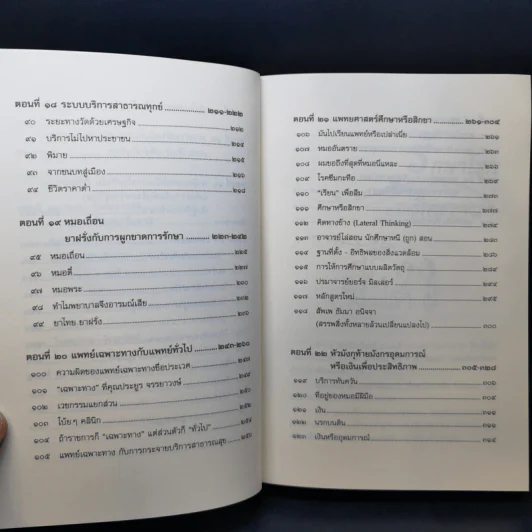 ตอนที่ ๑๘ ระบบบริการสาธารณทุกข์ .................. ๒๑๑-๒๒๒
๙๐ ระยะทางวัดด้วยเศรษฐกิจ ................ ๒๑๒
๙๑ บริการไม่ไปหาประชาชน ................ ๒๑๔
๙๒ พิมาย ................ ๒๑๕
๙๓ จากชนบทสู่เมือง ................ ๒๑๖
๙๔ ชีวิตราคาต่ำ ................ ๒๑๘
ตอนที่ ๑๙ หมอเถื่อน
ยาฝรั่งกับการผูกขาดการรักษา ........... ๒๒๓-๒๔๒
๙๕ หมอเถื่อน ................ ๒๒๕
๙๖ หมอตี๋ ................
๙๗ หมอพระ ................
๙๘ ทำไมพยาบาลจึงอารมณ์เสีย ................
๙๙ ยาไทย ยาฝรั่ง ................
ตอนที่ ๒๐ แพทย์เฉพาะทางกับแพทย์ทั่วไป ........ ๒๔๓-๒๖๐
๑๐๐ ความผิดของแพทย์เฉพาะทางชื่อประเวศ ........
๑๐๑ "เฉพาะทาง" ที่คุณประยูร จรรยาวงษ์ ........
๑๐๒ เวชกรรมแยกส่วน ................
๑๐๓ โบ๊ยๆ คลินิก ................
๑๐๔ ถ้ารายการก็ "เฉพาะทาง" แต่ส่วนตัวก็ "ทั่วไป" ........
๑๐๕ แพทย์เฉพาะทาง กับการกระจายบริการสาธารณสุข ........
ตอนที่ ๒๑ แพทยศาสตร์ศึกษาหรือสิกขา ............. ๒๖๑-๓๐๔
๑๐๖ มันไปเรียนแพทย์หรือเปล่าเนี่ย ................ ๒๖๑
๑๐๗ หมออันตราย ................ ๒๖๓
๑๐๘ ผมขอถึงที่สุดที่หมอนี่แหละ ................
๑๐๙ โรคซึมกะทือ ................
๑๑๐ "เรียน" เพื่อลืม ................
๑๑๑ ศึกษาหรือสิกขา ................
๑๑๒ คิดทางข้าง (Lateral Thinking) ................
๑๑๓ อาจารย์ไล่สอน นักศึกษาหนี (ถูก) สอน ........
๑๑๔ ฐานที่ตั้ง - อิทธิพลของสิ่งแวดล้อม ........
๑๑๕ การให้การศึกษาแบบผลิตวัตถุ ................
๑๑๖ ปรมาจารย์ยอร์จ มิลเลอร์ ................
๑๑๗ หลักสูตรใหม่ ................
๑๑๘ สัพเพ ธัมมา อนิจจา
(สรรพสิ่งทั้งหลายล้วนเปลี่ยนแปลงไป) ................ ๓๐๐
ตอนที่ ๒๒ หัวมังกุท้ายมังกรอุดมการณ์
หรือเงินเพื่อประสิทธิภาพ ................ ๓๐๕-๓๒๘
๑๑๙ บริการทันควัน ................ ๓๐๖
๑๒๐ ที่อยู่ของหมอมีฝีมือ ................
๑๒๑ เงิน ................
๑๒๒ นรกบนดิน ................
๑๒๓ เงินหรืออุดมการณ์ ................